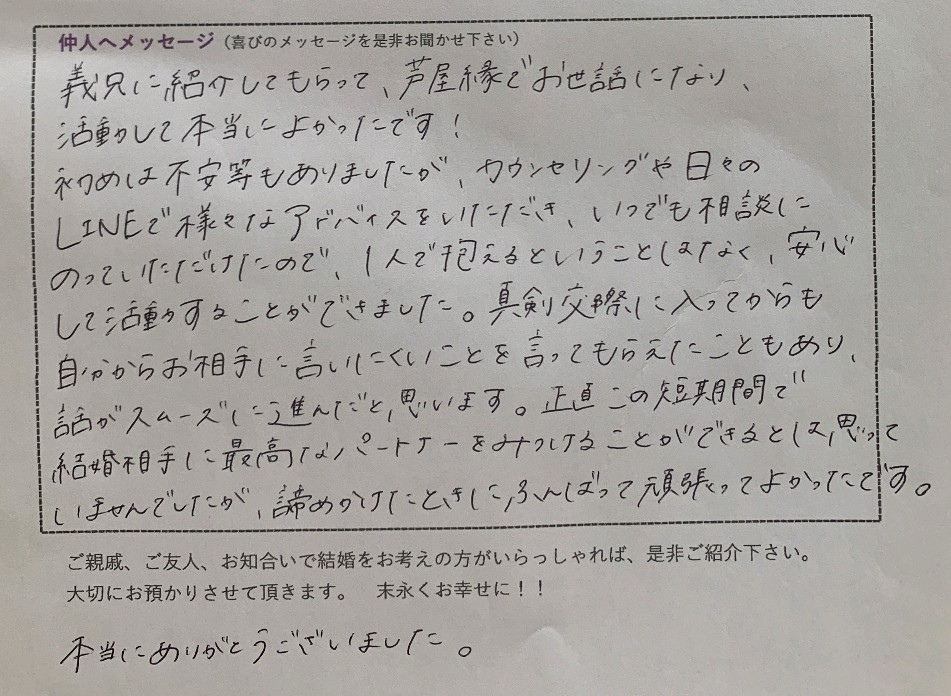 仲人へメッセージ（喜びのメッセージを是非お聞かせ下さい）
義兄に紹介してもらって、芦屋縁でお世話になり、
活動して本当によかったです！
初めは不安等もありましたが、カウンセリングや日々の
LINEで様々なアドバイスをいただき、いつでも相談に
のっていただけたので、1人で抱えるということはなく、安心
して活動することができました。真剣交際に入ってからも
自分からお相手に言いにくいことを言ってもらえたこともあり、
話がスムーズに進んだと思います。正直この短期間で
結婚相手に最高なパートナーをみつけることができるとは思って
いませんでしたが、諦めかけたときに、ふんばって頑張ってよかったです。
ご親戚、ご友人、お知合いで結婚をお考えの方がいらっしゃれば、是非ご紹介下さい。
大切にお預かりさせて頂きます。　末永くお幸せに！！
本当にありがとうございました。